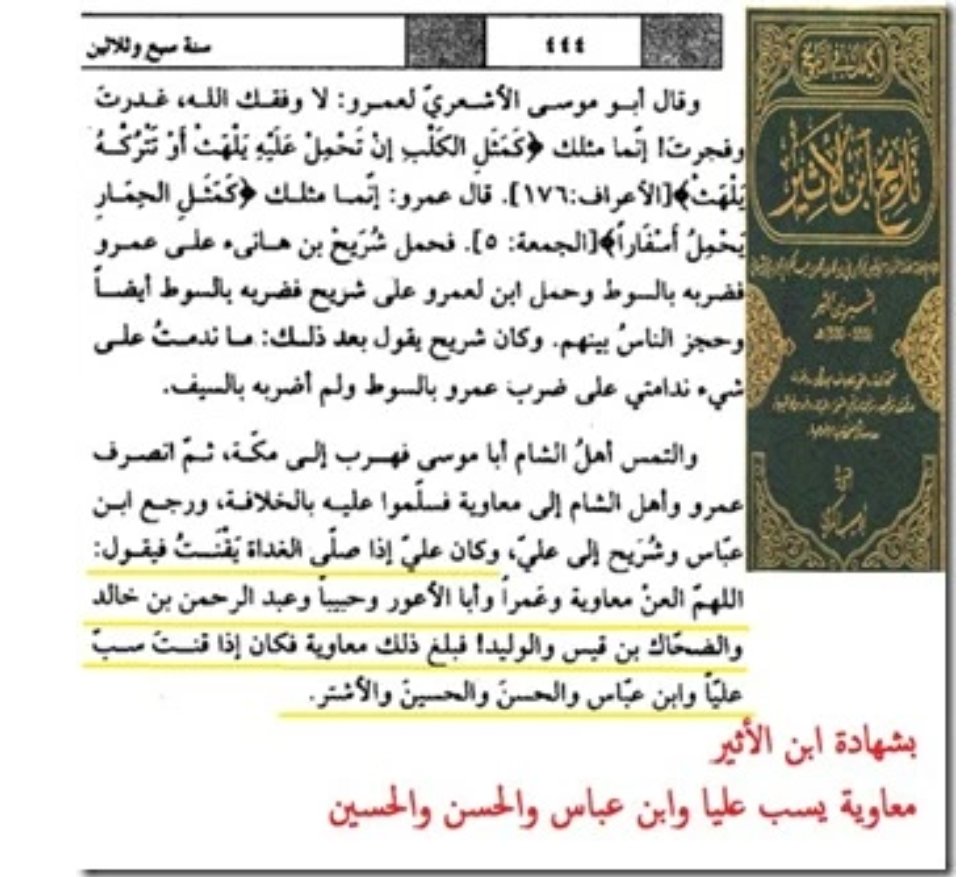 سنة سبع وثلاثين
٤٤٤
وقال أبو موسى الأشعريّ لعمرو: لا وفقك الله، غدرتَ
وفجرتَ! إنّما مثلك ﴿كَمَثَلِ الكَلْبِ إنْ تَحْمِلْ عَلَيْهِ يَلْهَثْ أوْ تَتْرُكْهُ
يَلْهَثْ﴾[الأعراف:١٧٦]. قال عمرو: إنّما مثلك ﴿كَمَثَلِ الحِمَارِ
يَحْمِلُ أسْفَاراً﴾[الجمعة: ٥]. فحمل شُرَيحْ بن هانىء على عمرو
فضربه بالسوط وحمل ابن لعمرو على شريح فضربه بالسوط أيضاً
وحجز الناسُ بينهم. وكان شريح يقول بعد ذلك: ما ندمتُ على
شيء ندامتي على ضرب عمرو بالسوط ولم أضربه بالسيف.
والتمس أهلُ الشام أبا موسى فهرب إلى مكّة، ثمّ انصرف
عمرو وأهل الشام إلى معاوية فسلّموا عليه بالخلافة، ورجع ابن
عبّاس وشُرَيح إلى عليّ، وكان عليّ إذا صلّى الغداة يَقْنَتُ فيقول:
اللهمّ العنْ معاوية وعَمراً وأبا الأعور وحبيباً وعبد الرحمن بن خالد
والضحّاك بن قيس والوليد! فبلغ ذلك معاوية فكان إذا قنت سبّ
عليّاً وابن عبّاس والحسنَ والحسينَ والأشتر.
الكامل في التاريخ
تاريخ ابن الأثير
بشهادة ابن الأثير
معاوية يسب عليا وابن عباس والحسن والحسين